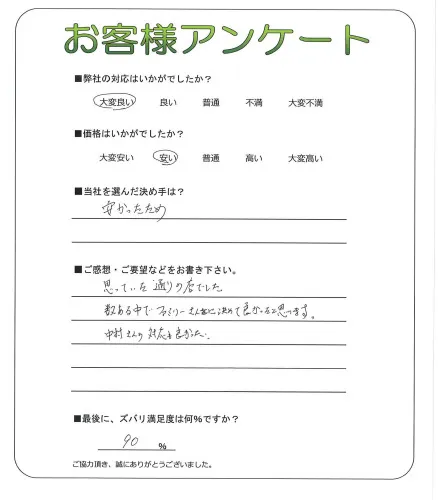 お客様アンケート
■弊社の対応はいかがでしたか？
大変良い 良い 普通 不満 大変不満
■価格はいかがでしたか？
大変安い 安い 普通 高い 大変高い
■当社を選んだ決め手は？
安かったため
■ご感想・ご要望などをお書き下さい。
思っていた通りの店でした
数ある中でファミリーさんに決めて良かったと思います。
中村さんの対応も良かった。
■最後に、ズバリ満足度は何%ですか？
90 %
ご協力頂き、誠にありがとうございました。